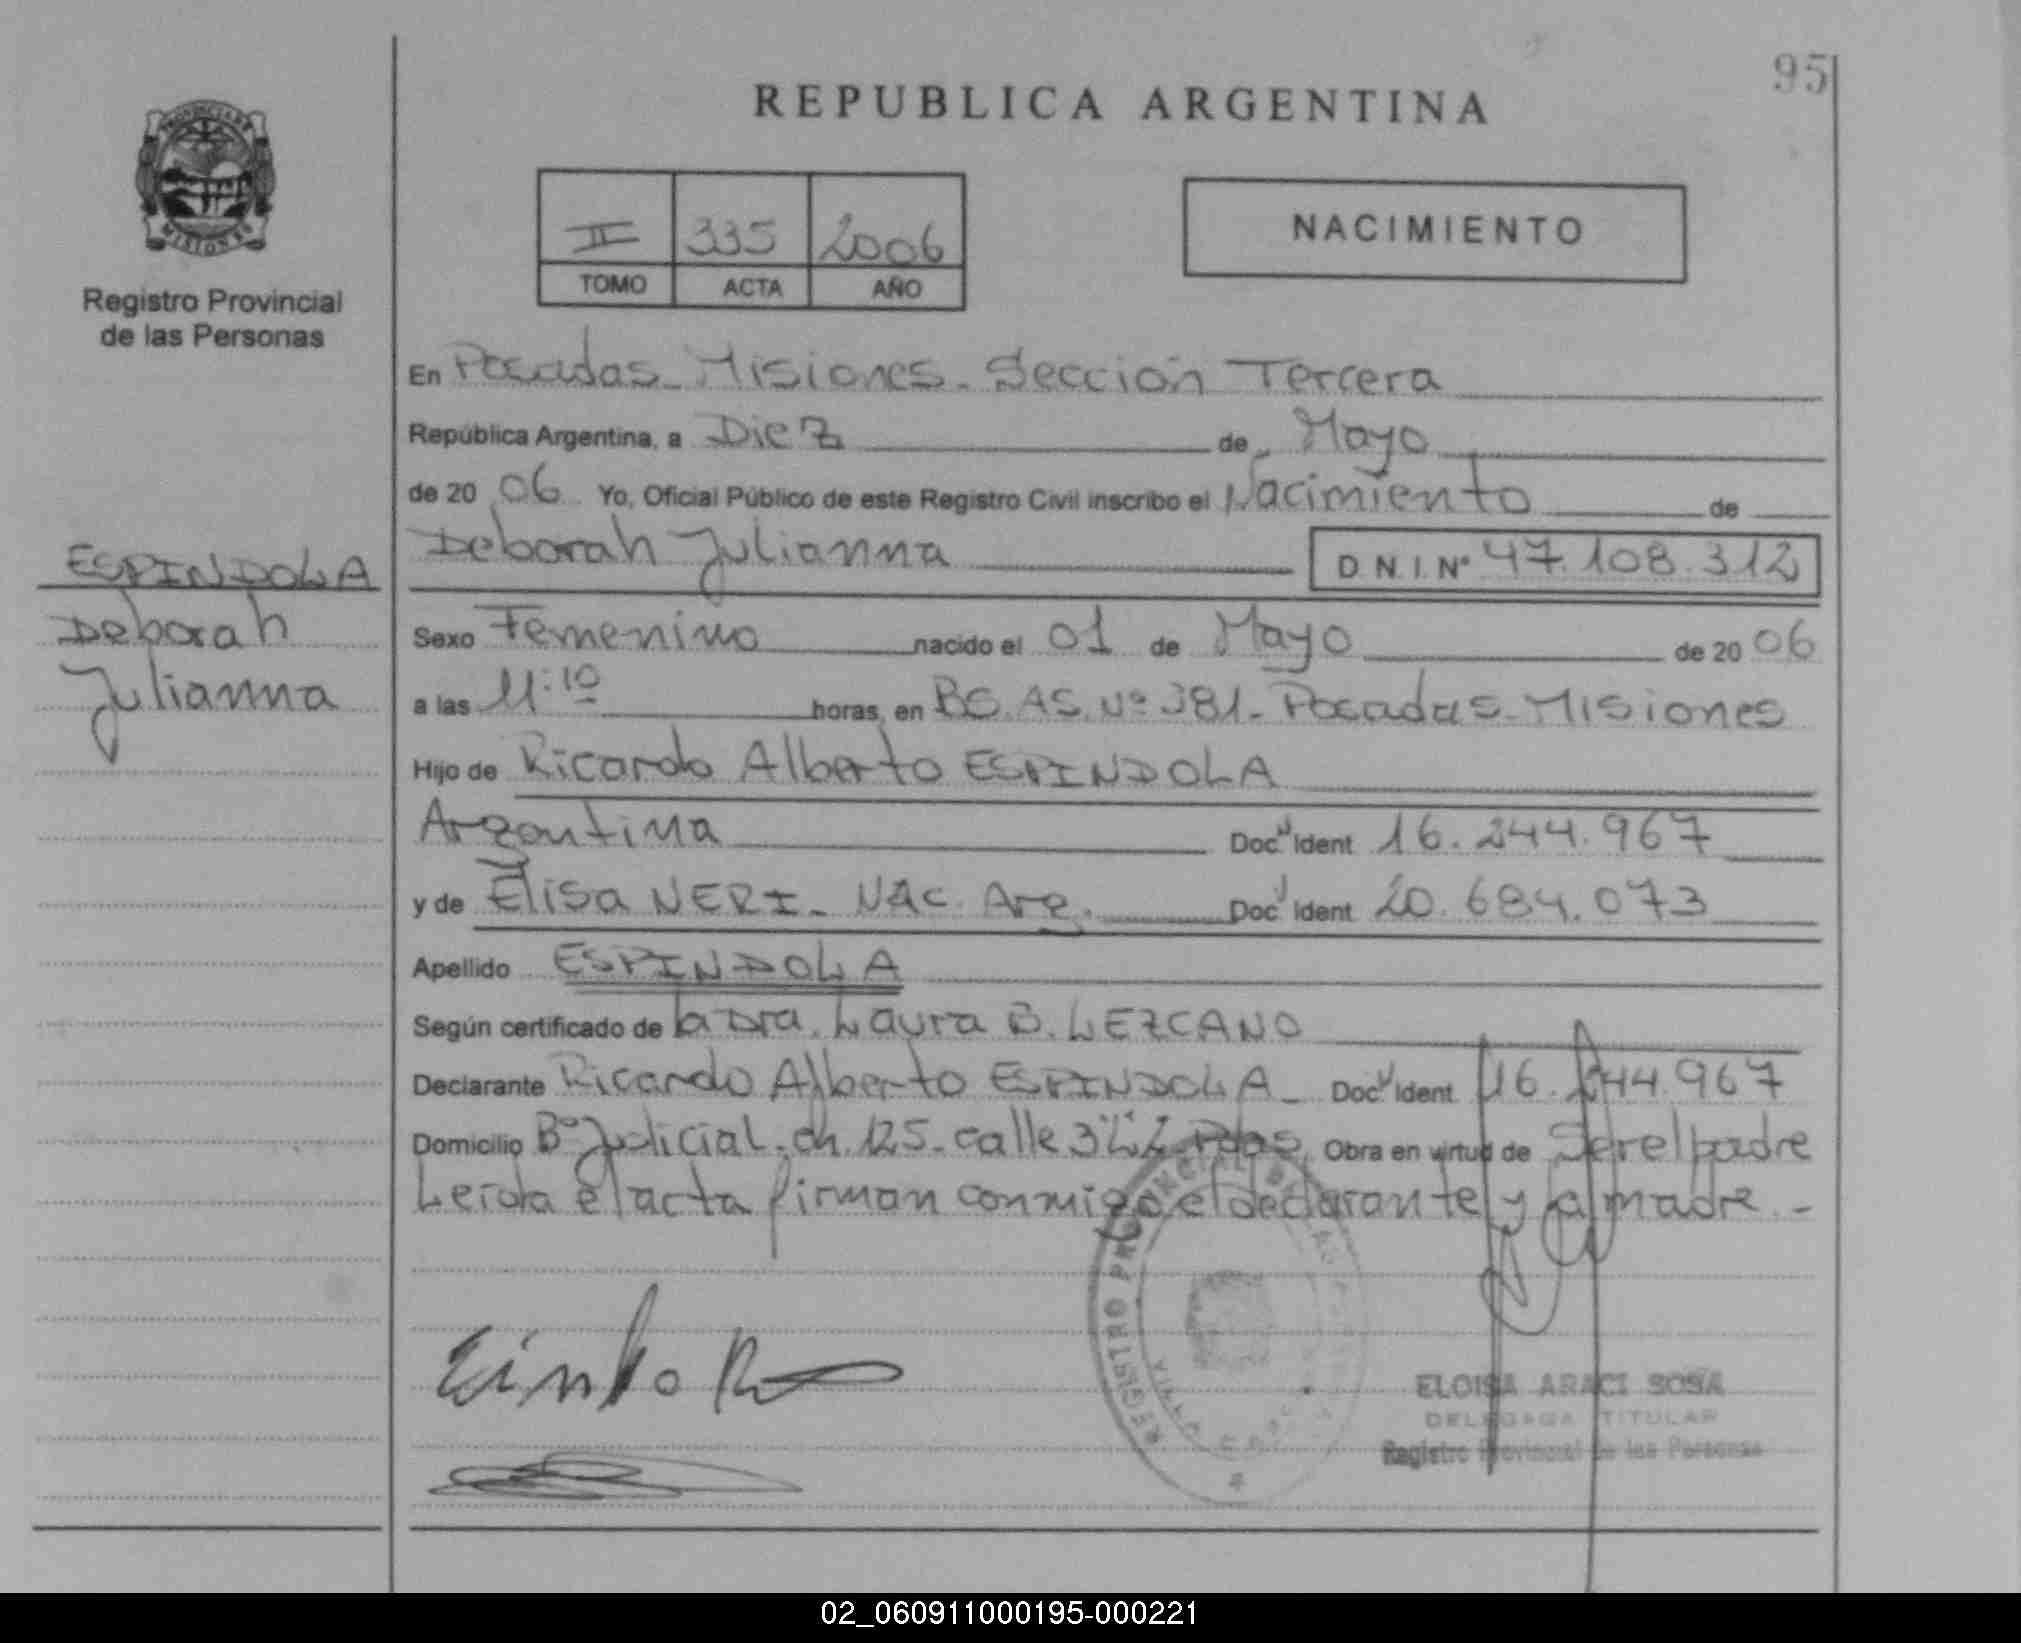 95
REPUBLICA ARGENTINA
PROVINCIA DE
MISIONES
Registro Provincial
de las Personas
II 335 2006
TOMO ACTA AÑO
NACIMIENTO
En Posadas - Misiones - Sección Tercera
República Argentina, a Diez de Mayo
de 2006 Yo, Oficial Público de este Registro Civil inscribo el Nacimiento de
Deborah Julianna D.N.I. Nº 47.108.312
ESPINDOLA
Deborah
Julianna
Sexo Femenino nacido el 01 de Mayo de 2006
a las 11:10 horas, en BS.AS. Nº 381 - Posadas - Misiones
Hijo de Ricardo Alberto ESPINDOLA
Argentina Doc. Ident 16.244.967
y de Elisa NERI - Nac. Arg. Doc. Ident 20.684.073
Apellido ESPINDOLA
Según certificado de la Dra. Laura B. LEZCANO
Declarante Ricardo Alberto ESPINDOLA - Doc. Ident 16.244.967
Domicilio Bº Judicial - ch. 125 - calle Pdas Obra en virtud de Ser el padre
Leida el acta firman conmigo el declarante y la madre -
REGISTRO PROVINCIAL DE LAS
ELOISA ARACI SOSA
DELEGADA TITULAR
Registro Provincial de las Personas
02_060911000195-000221